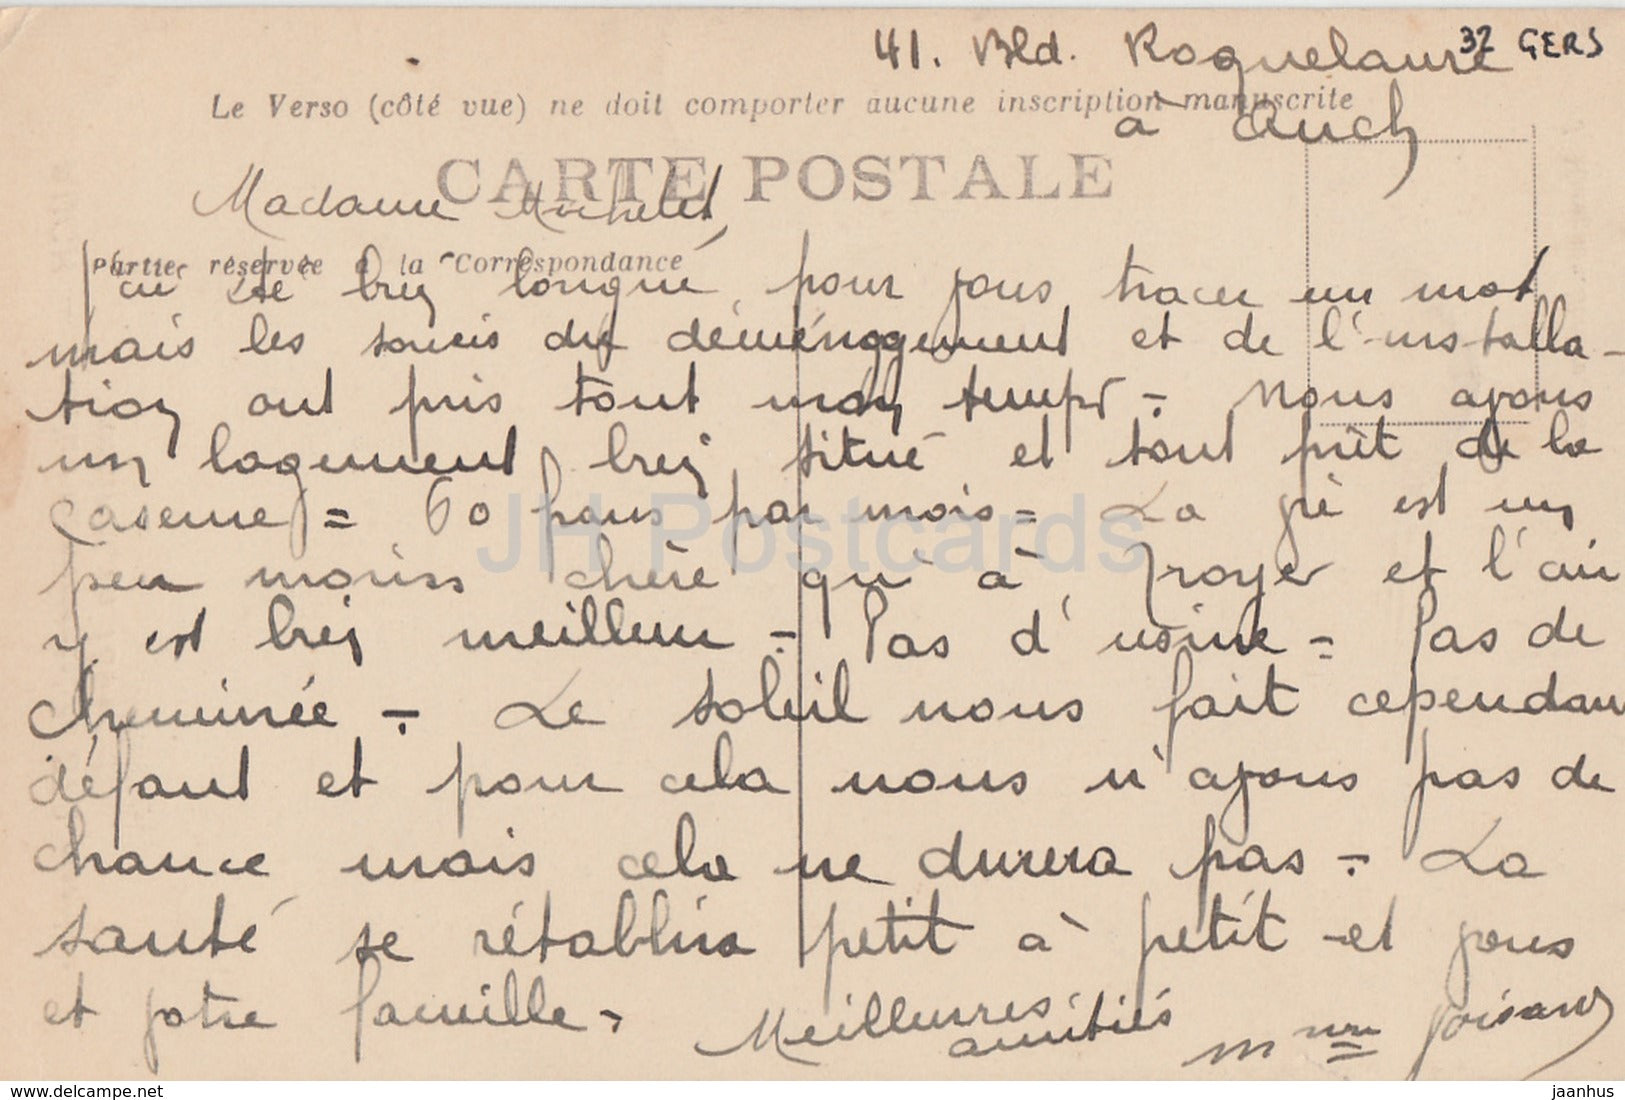 41. Bld. Roquelaure 32 GERS
Le Verso (côté vue) ne doit comporter aucune inscription manuscrite
à Auch
CARTE POSTALE
Madame Michelet,
Partie réservée à la Correspondance
J'ai été bien longue pour vous tracer un mot
mais les soucis du déménagement et de l'installa-
tion ont pris tout mon temps - Nous avons
un logement bien situé et tout prêt de la
caserne = 60 francs par mois = La vie est un
peu moins chère qu'à Troyes et l'air
y est bien meilleur - Pas d'usine = Pas de
cheminée - Le soleil nous fait cependant
défaut et pour cela nous n'avons pas de
chance mais cela ne durera pas - La
santé se rétablira petit à petit et vous
et votre famille -
Meilleures
amitiés
Mme Voisin
JH Postcards
www.delcampe.net
jaanhus